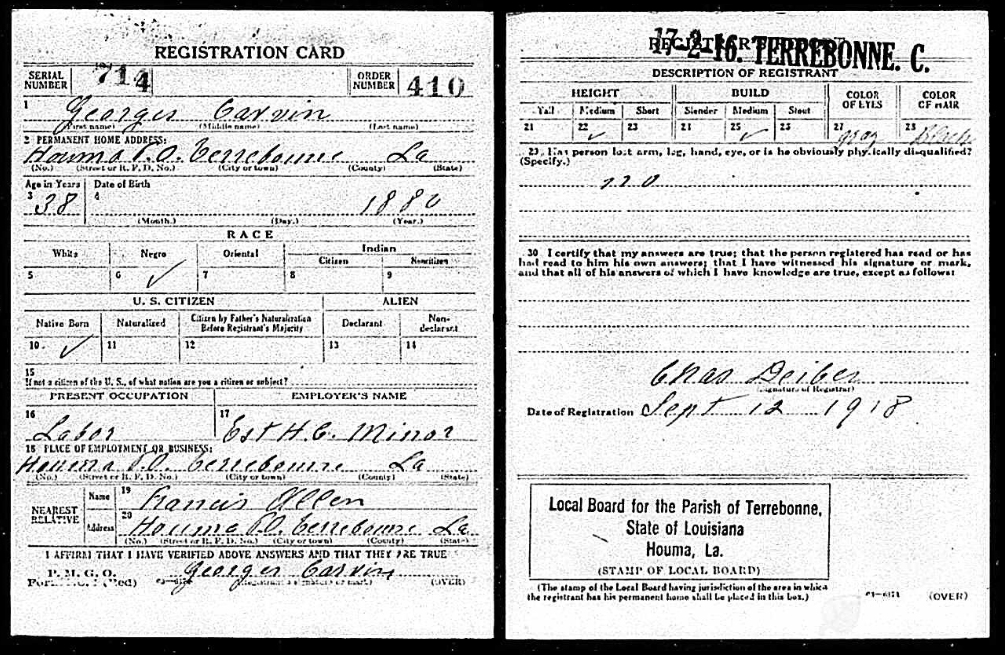 REGISTRATION CARD
SERIAL NUMBER 714 ORDER NUMBER 410
1 Georges Carvin
(First name) (Middle name) (Last name)
2 PERMANENT HOME ADDRESS:
Houma P.O. Terrebonne La
(No.) (Street or R. F. D. No.) (City or town) (County) (State)
Age in Years Date of Birth
3 38 4 1880
(Month.) (Day.) (Year.)
RACE
White Negro Oriental Indian
Citizen Noncitizen
5 6 ✓ 7 8 9
U. S. CITIZEN ALIEN
Native Born Naturalized Citizen by Father's Naturalization Before Registrant's Majority Declarant Non-declarant
10 ✓ 11 12 13 14
15
If not a citizen of the U. S., of what nation are you a citizen or subject?
PRESENT OCCUPATION EMPLOYER'S NAME
16 Labor 17 Est H. C. Minor
18 PLACE OF EMPLOYMENT OR BUSINESS:
Houma P.O. Terrebonne La
(No.) (Street or R. F. D. No.) (City or town) (County) (State)
NEAREST RELATIVE Name 19 Francis Allen
Address 20 Houma P.O. Terrebonne La
(No.) (Street or R. F. D. No.) (City or town) (County) (State)
I AFFIRM THAT I HAVE VERIFIED ABOVE ANSWERS AND THAT THEY ARE TRUE
P. M. G. O.
Form No. 1 (Red) Georges Carvin (OVER)
17-2-16. TERREBONNE. C.
DESCRIPTION OF REGISTRANT
HEIGHT BUILD COLOR OF EYES COLOR OF HAIR
Tall Medium Short Slender Medium Stout
21 22 ✓ 23 24 25 ✓ 26 27 gray 28 Black
29 Has person lost arm, leg, hand, eye, or is he obviously physically disqualified?
(Specify.)
no
30 I certify that my answers are true; that the person registered has read or has
had read to him his own answers; that I have witnessed his signature or mark,
and that all of his answers of which I have knowledge are true, except as follows:
Chas Deiber
(Signature of Registrar)
Date of Registration Sept 12 1918
Local Board for the Parish of Terrebonne,
State of Louisiana
Houma, La.
(STAMP OF LOCAL BOARD)
(The stamp of the Local Board having jurisdiction of the area in which
the registrant has his permanent home shall be placed in this box.)
(OVER)